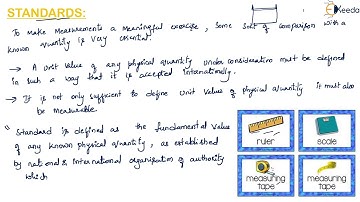 STANDARDS:
Ekeeda
To make Measurements a Meaningful exercise, Some Sort of Comparison with a
known quantity is Very essential.
→ A Unit Value of any physical quantity under consideration must be defined
in such a way that it is accepted internationally.
→ It is not only sufficient to define Unit Value of physical quantity it must also
be measurable.
" Standard is defined as the fundamental Value
of any known physical quantity, as established
by national & International organisation of authority
which
ruler
scale
measuring
tape
measuring
tape